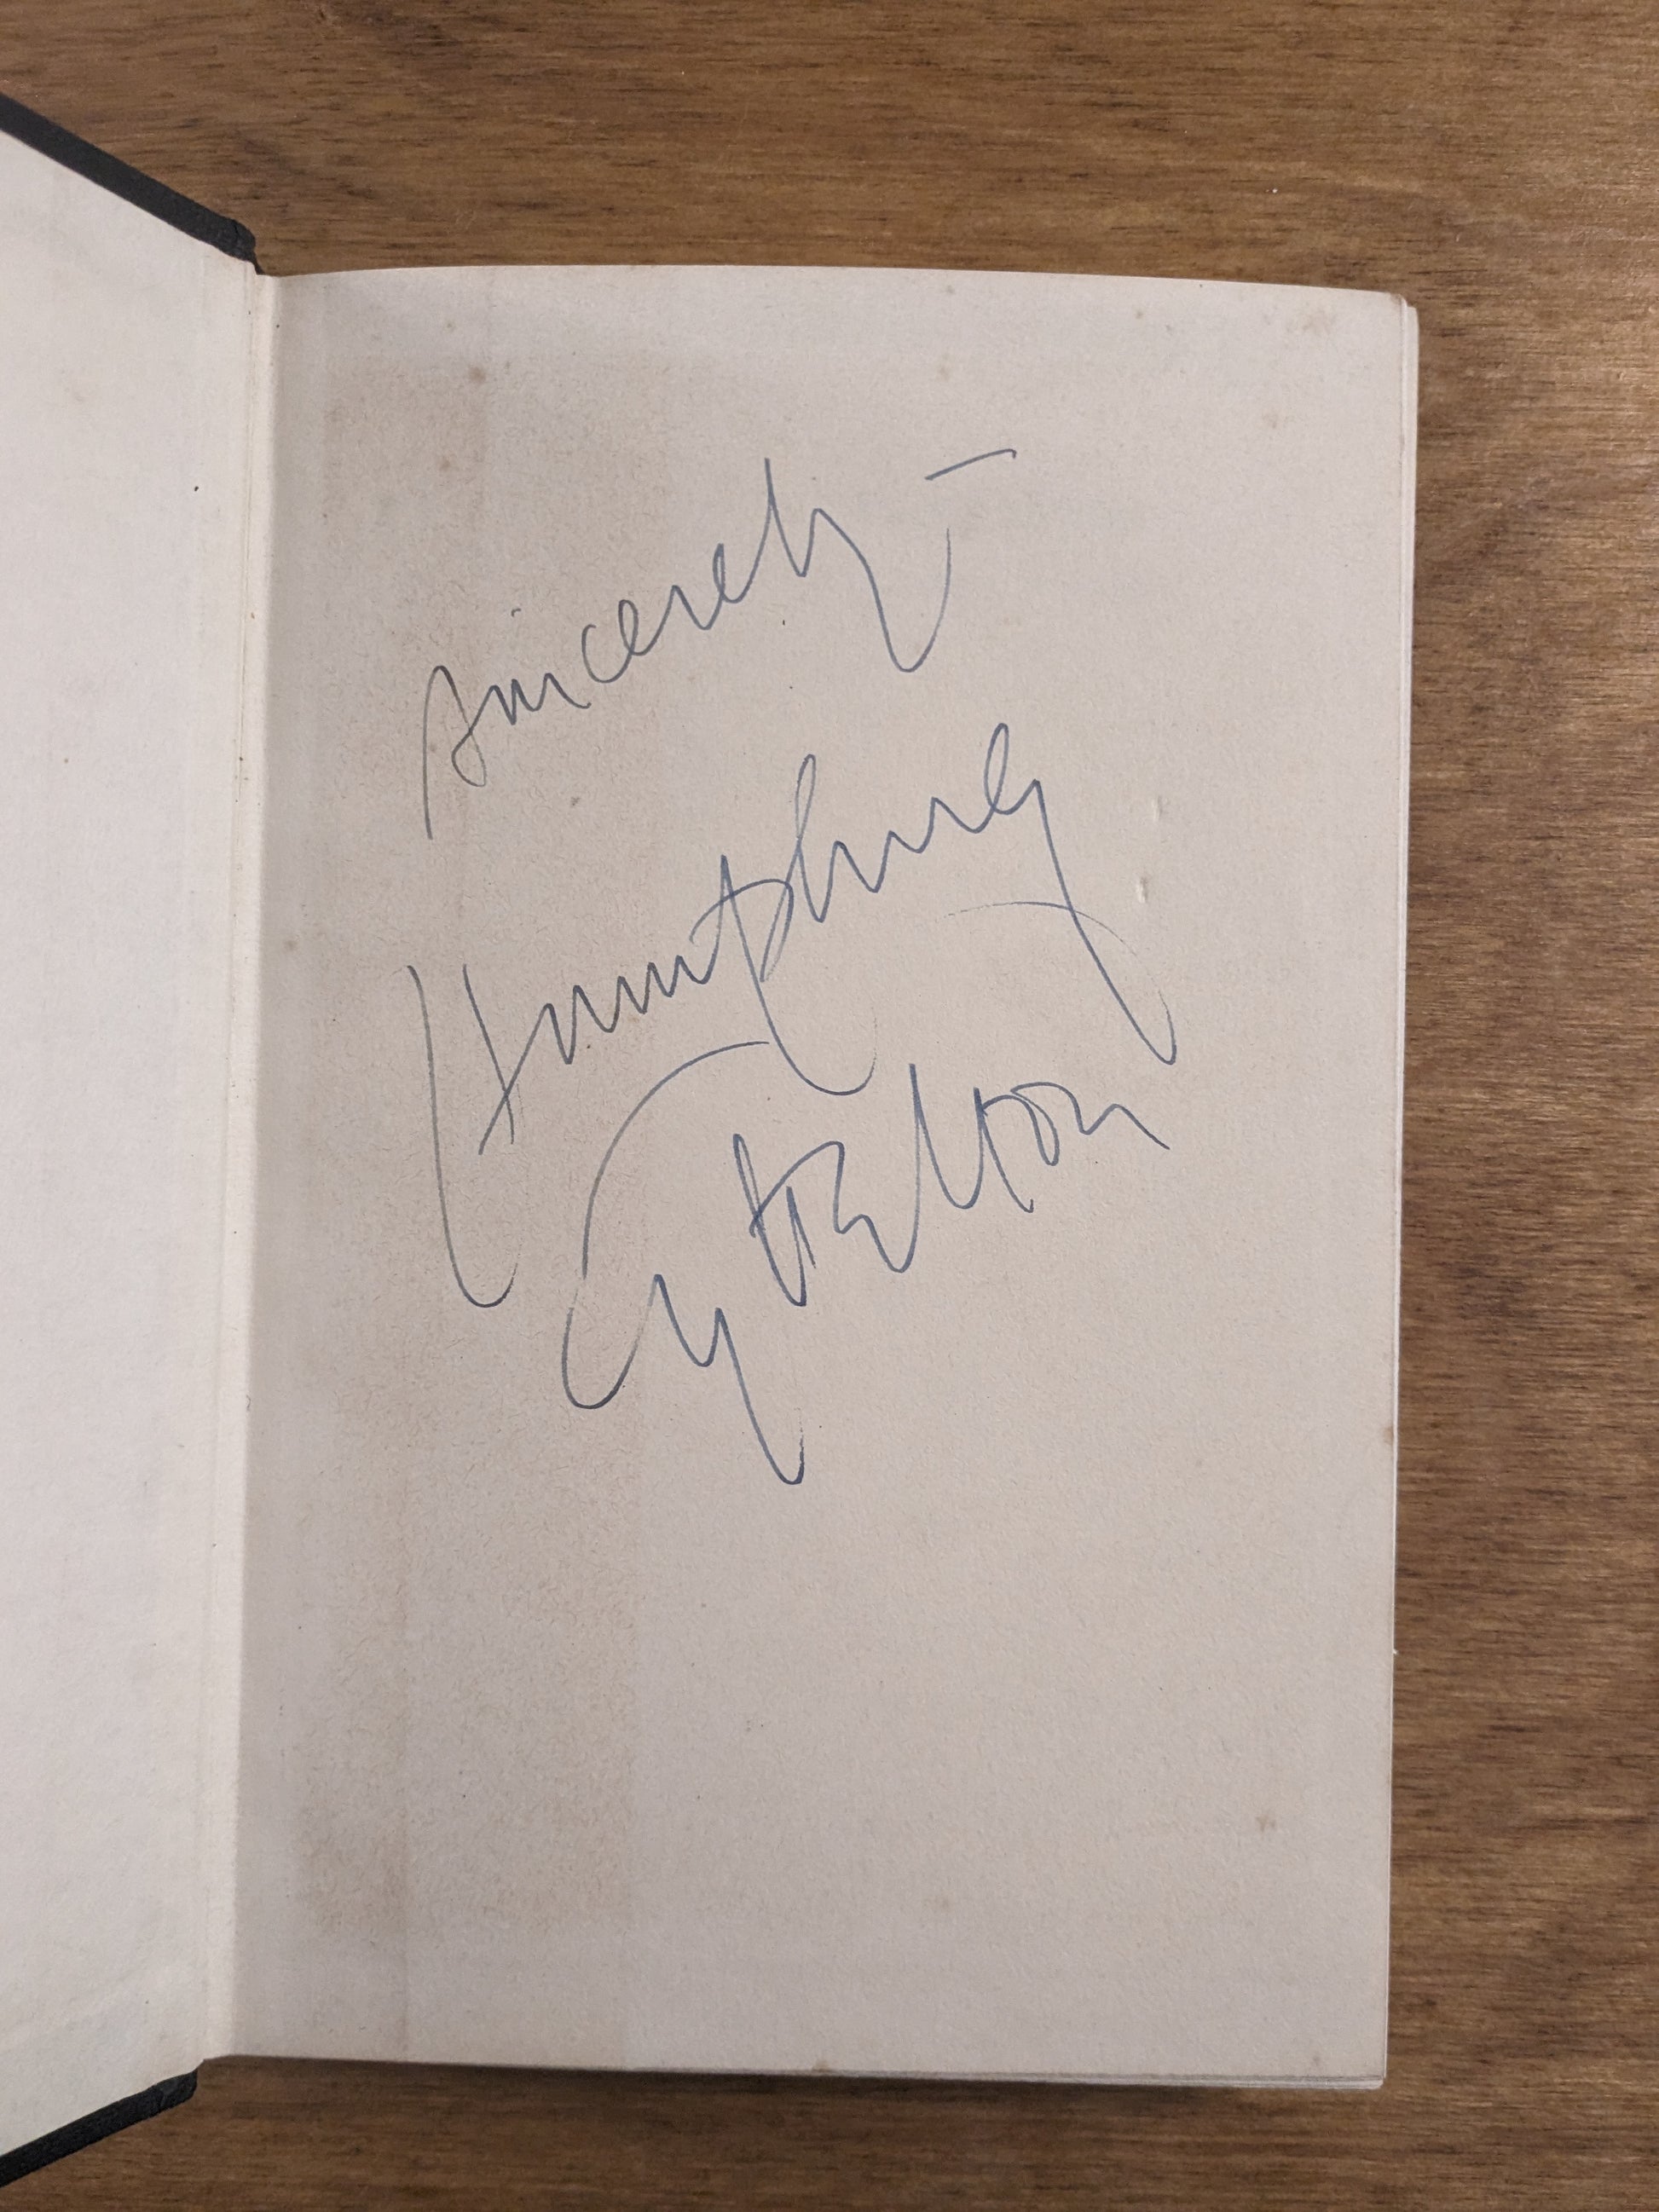 Sincerely —
Humphrey
Lyttelton